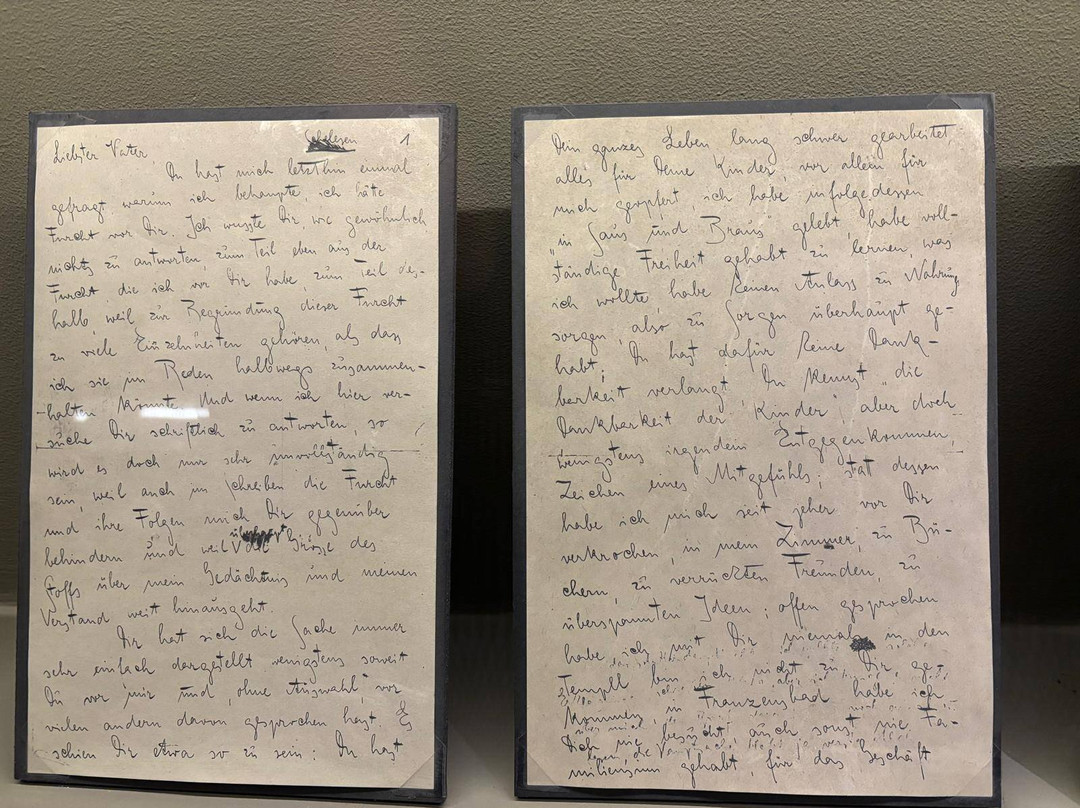 Schelesen 1
Liebster Vater,
Du hast mich letzthin einmal
gefragt, warum ich behaupte, ich hätte
Furcht vor Dir. Ich wusste Dir, wie gewöhnlich
nichts zu antworten, zum Teil eben aus der
Furcht, die ich vor Dir habe, zum Teil des-
halb, weil zur Begründung dieser Furcht
zu viele Einzelheiten gehören, als dass
ich sie im Reden halbwegs zusammen-
halten könnte. Und wenn ich hier ver-
suche Dir schriftlich zu antworten, so
wird es doch nur sehr unvollständig
sein, weil auch im Schreiben die Furcht
und ihre Folgen mich Dir gegenüber
behindern und weil die Grösse des
Stoffs über mein Gedächtnis und meinen
Verstand weit hinausgeht.
Dir hat sich die Sache immer
sehr einfach dargestellt, wenigstens soweit
Du vor mir und, ohne Auswahl, vor
vielen andern davon gesprochen hast. Es
schien Dir etwa so zu sein: Du hast
Dein ganzes Leben lang schwer gearbeitet,
alles für Deine Kinder, vor allem für
mich geopfert, ich habe infolgedessen
„in Saus und Braus" gelebt, habe voll-
ständige Freiheit gehabt zu lernen, was
ich wollte, habe keinen Anlass zu Nahrung
sorgen, also zu Sorgen überhaupt ge-
habt; Du hast dafür keine Dank-
barkeit verlangt, Du kennst „die
Dankbarkeit der Kinder" aber doch
wenigstens irgendein Entgegenkommen,
Zeichen eines Mitgefühls; statt dessen
habe ich mich seit jeher vor Dir
verkrochen, in mein Zimmer, zu Bü-
chern, zu verrückten Freunden, zu
überspannten Ideen; offen gesprochen
habe ich mit Dir niemals, in den
Tempel bin ich nicht zu Dir ge-
kommen, in Franzensbad habe ich
Dich nie besucht, auch sonst nie Fa-
miliensinn gehabt, für das Geschäft